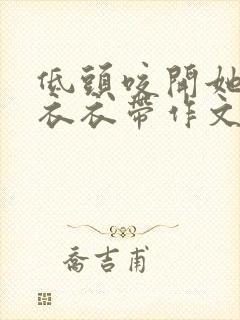 低頭咬開她
衣衣帶作文
喬吉甫